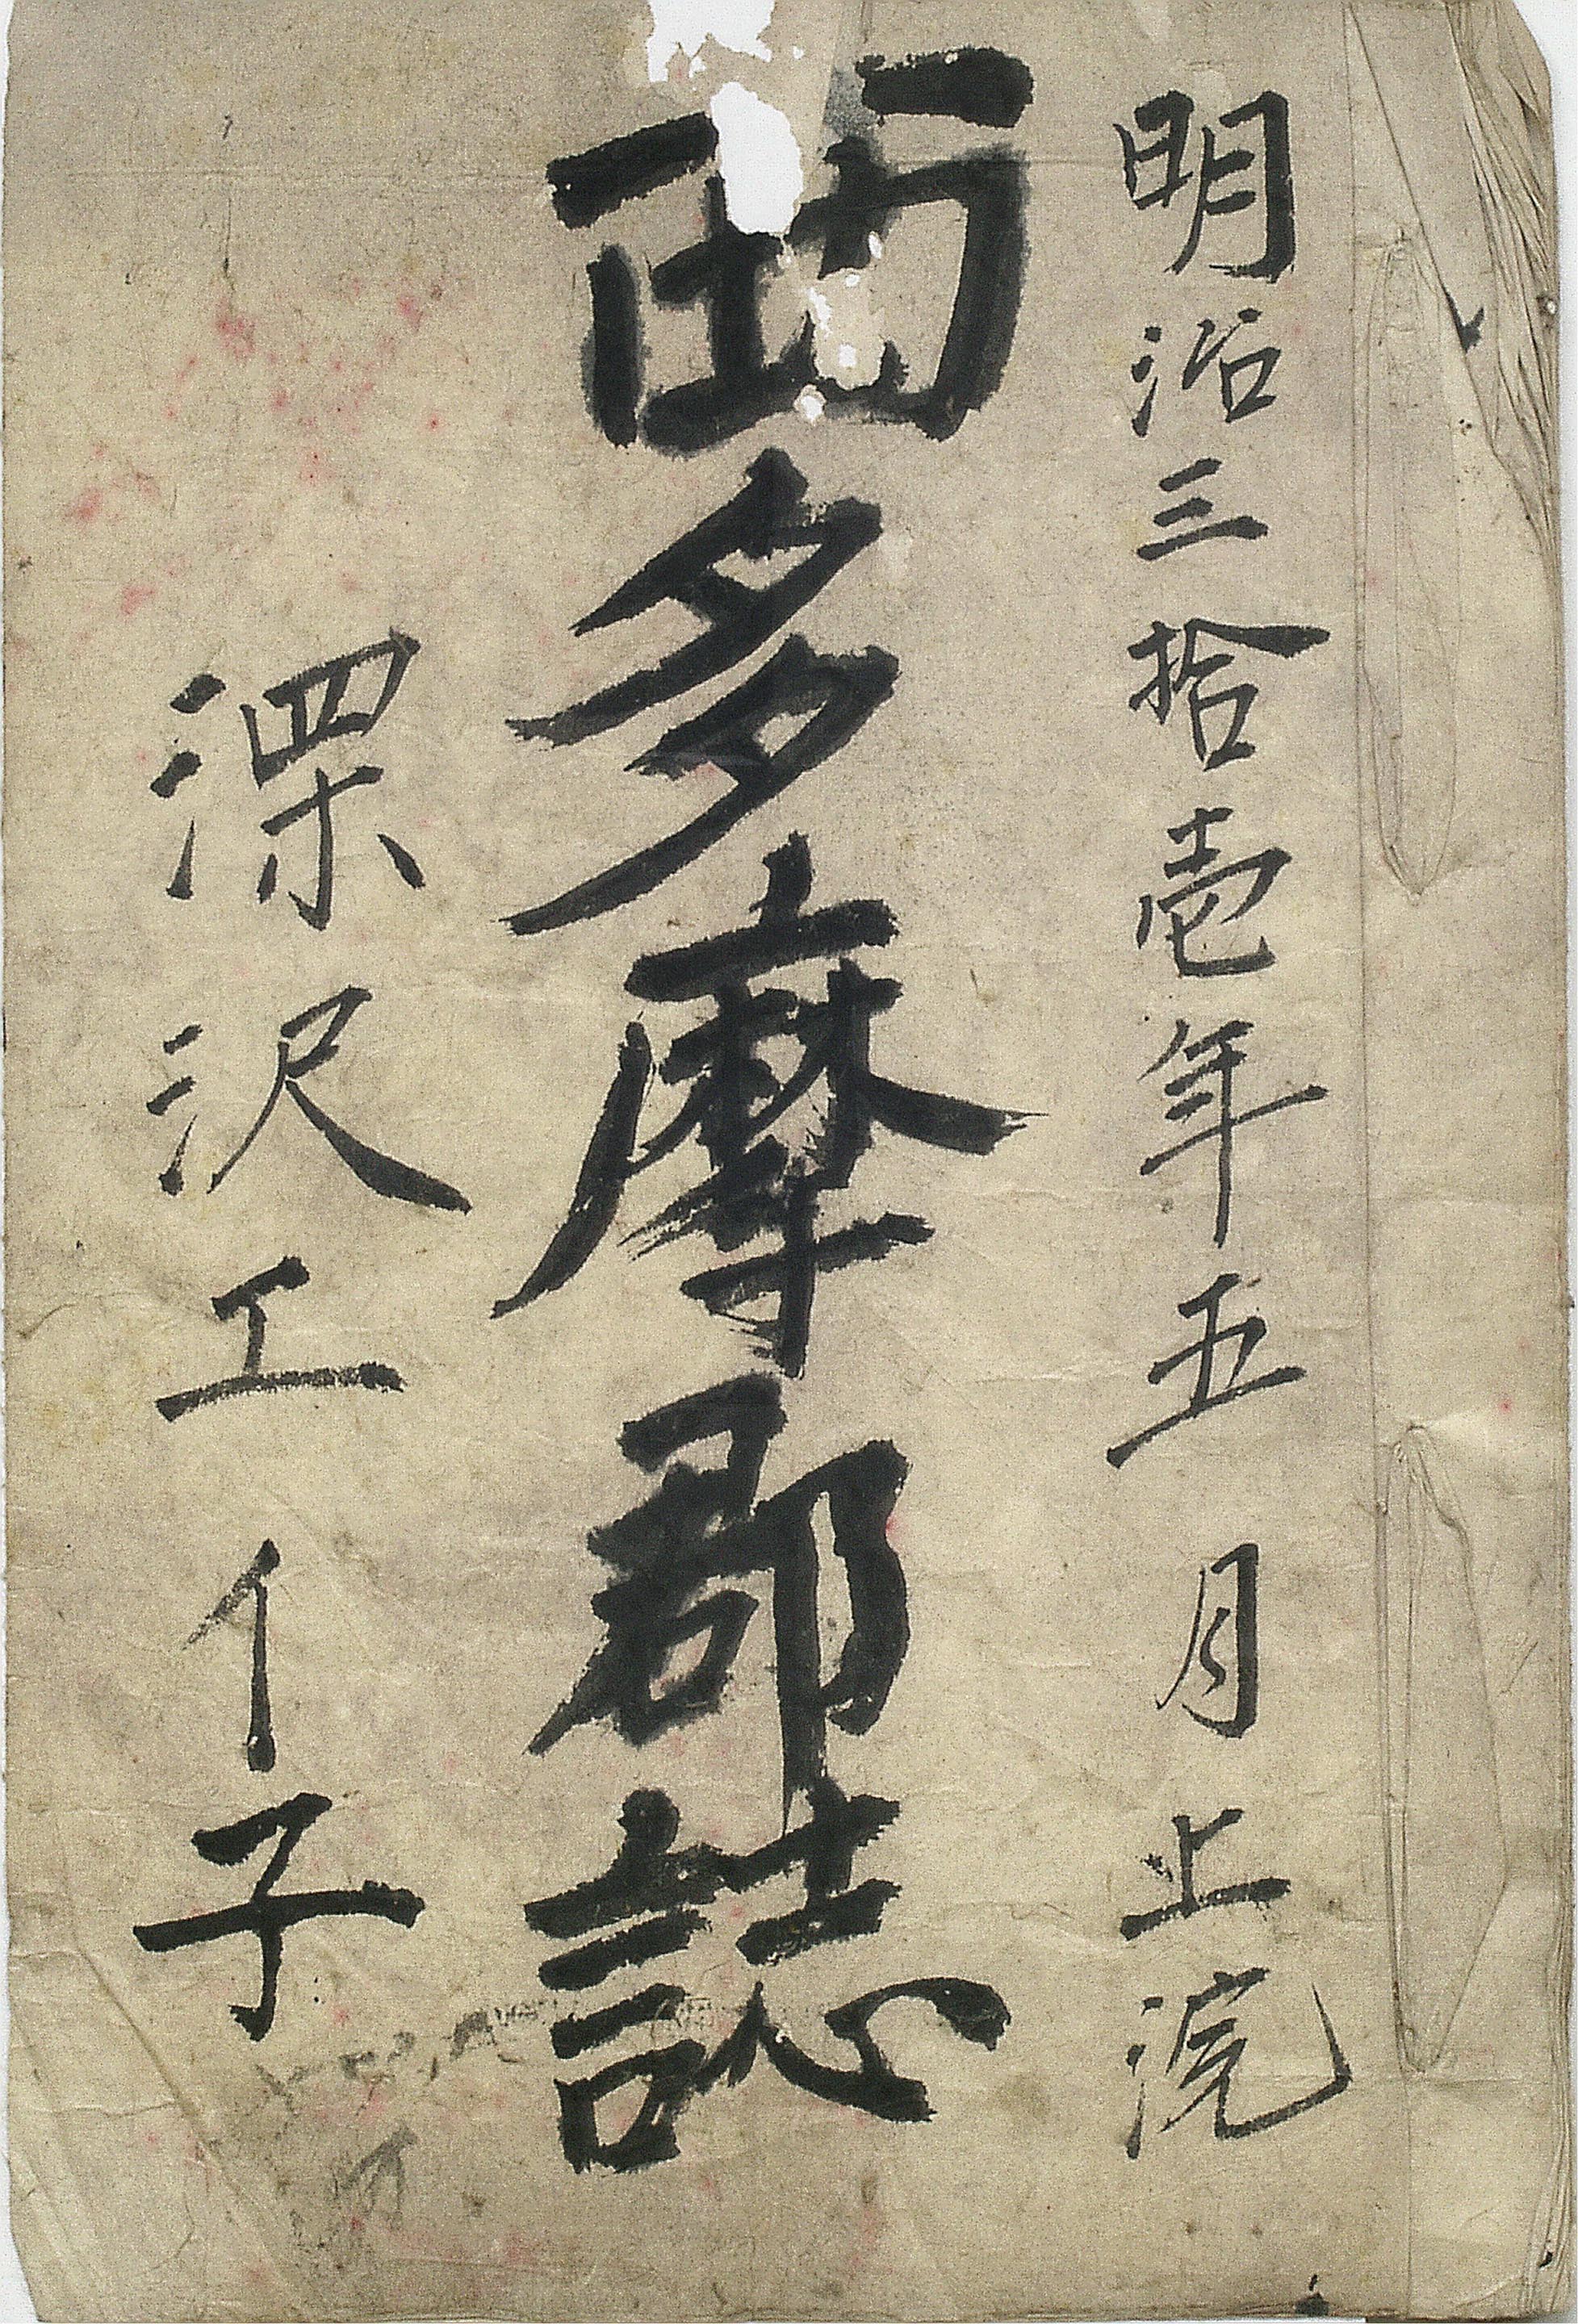 明治三拾壱年五月上浣
西多摩郡誌
深沢エイ子